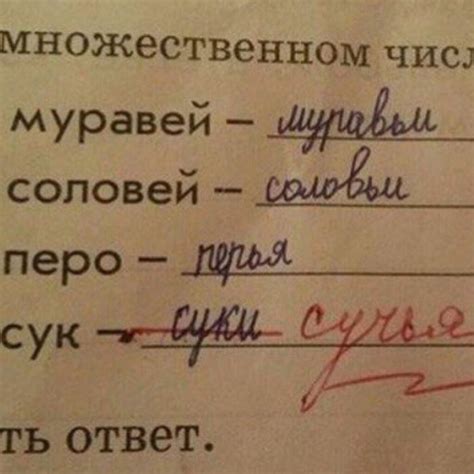 множественном чис
муравей – муравьи
соловей – соловьи
перо – перья
сук – суки сучья
ть ответ.